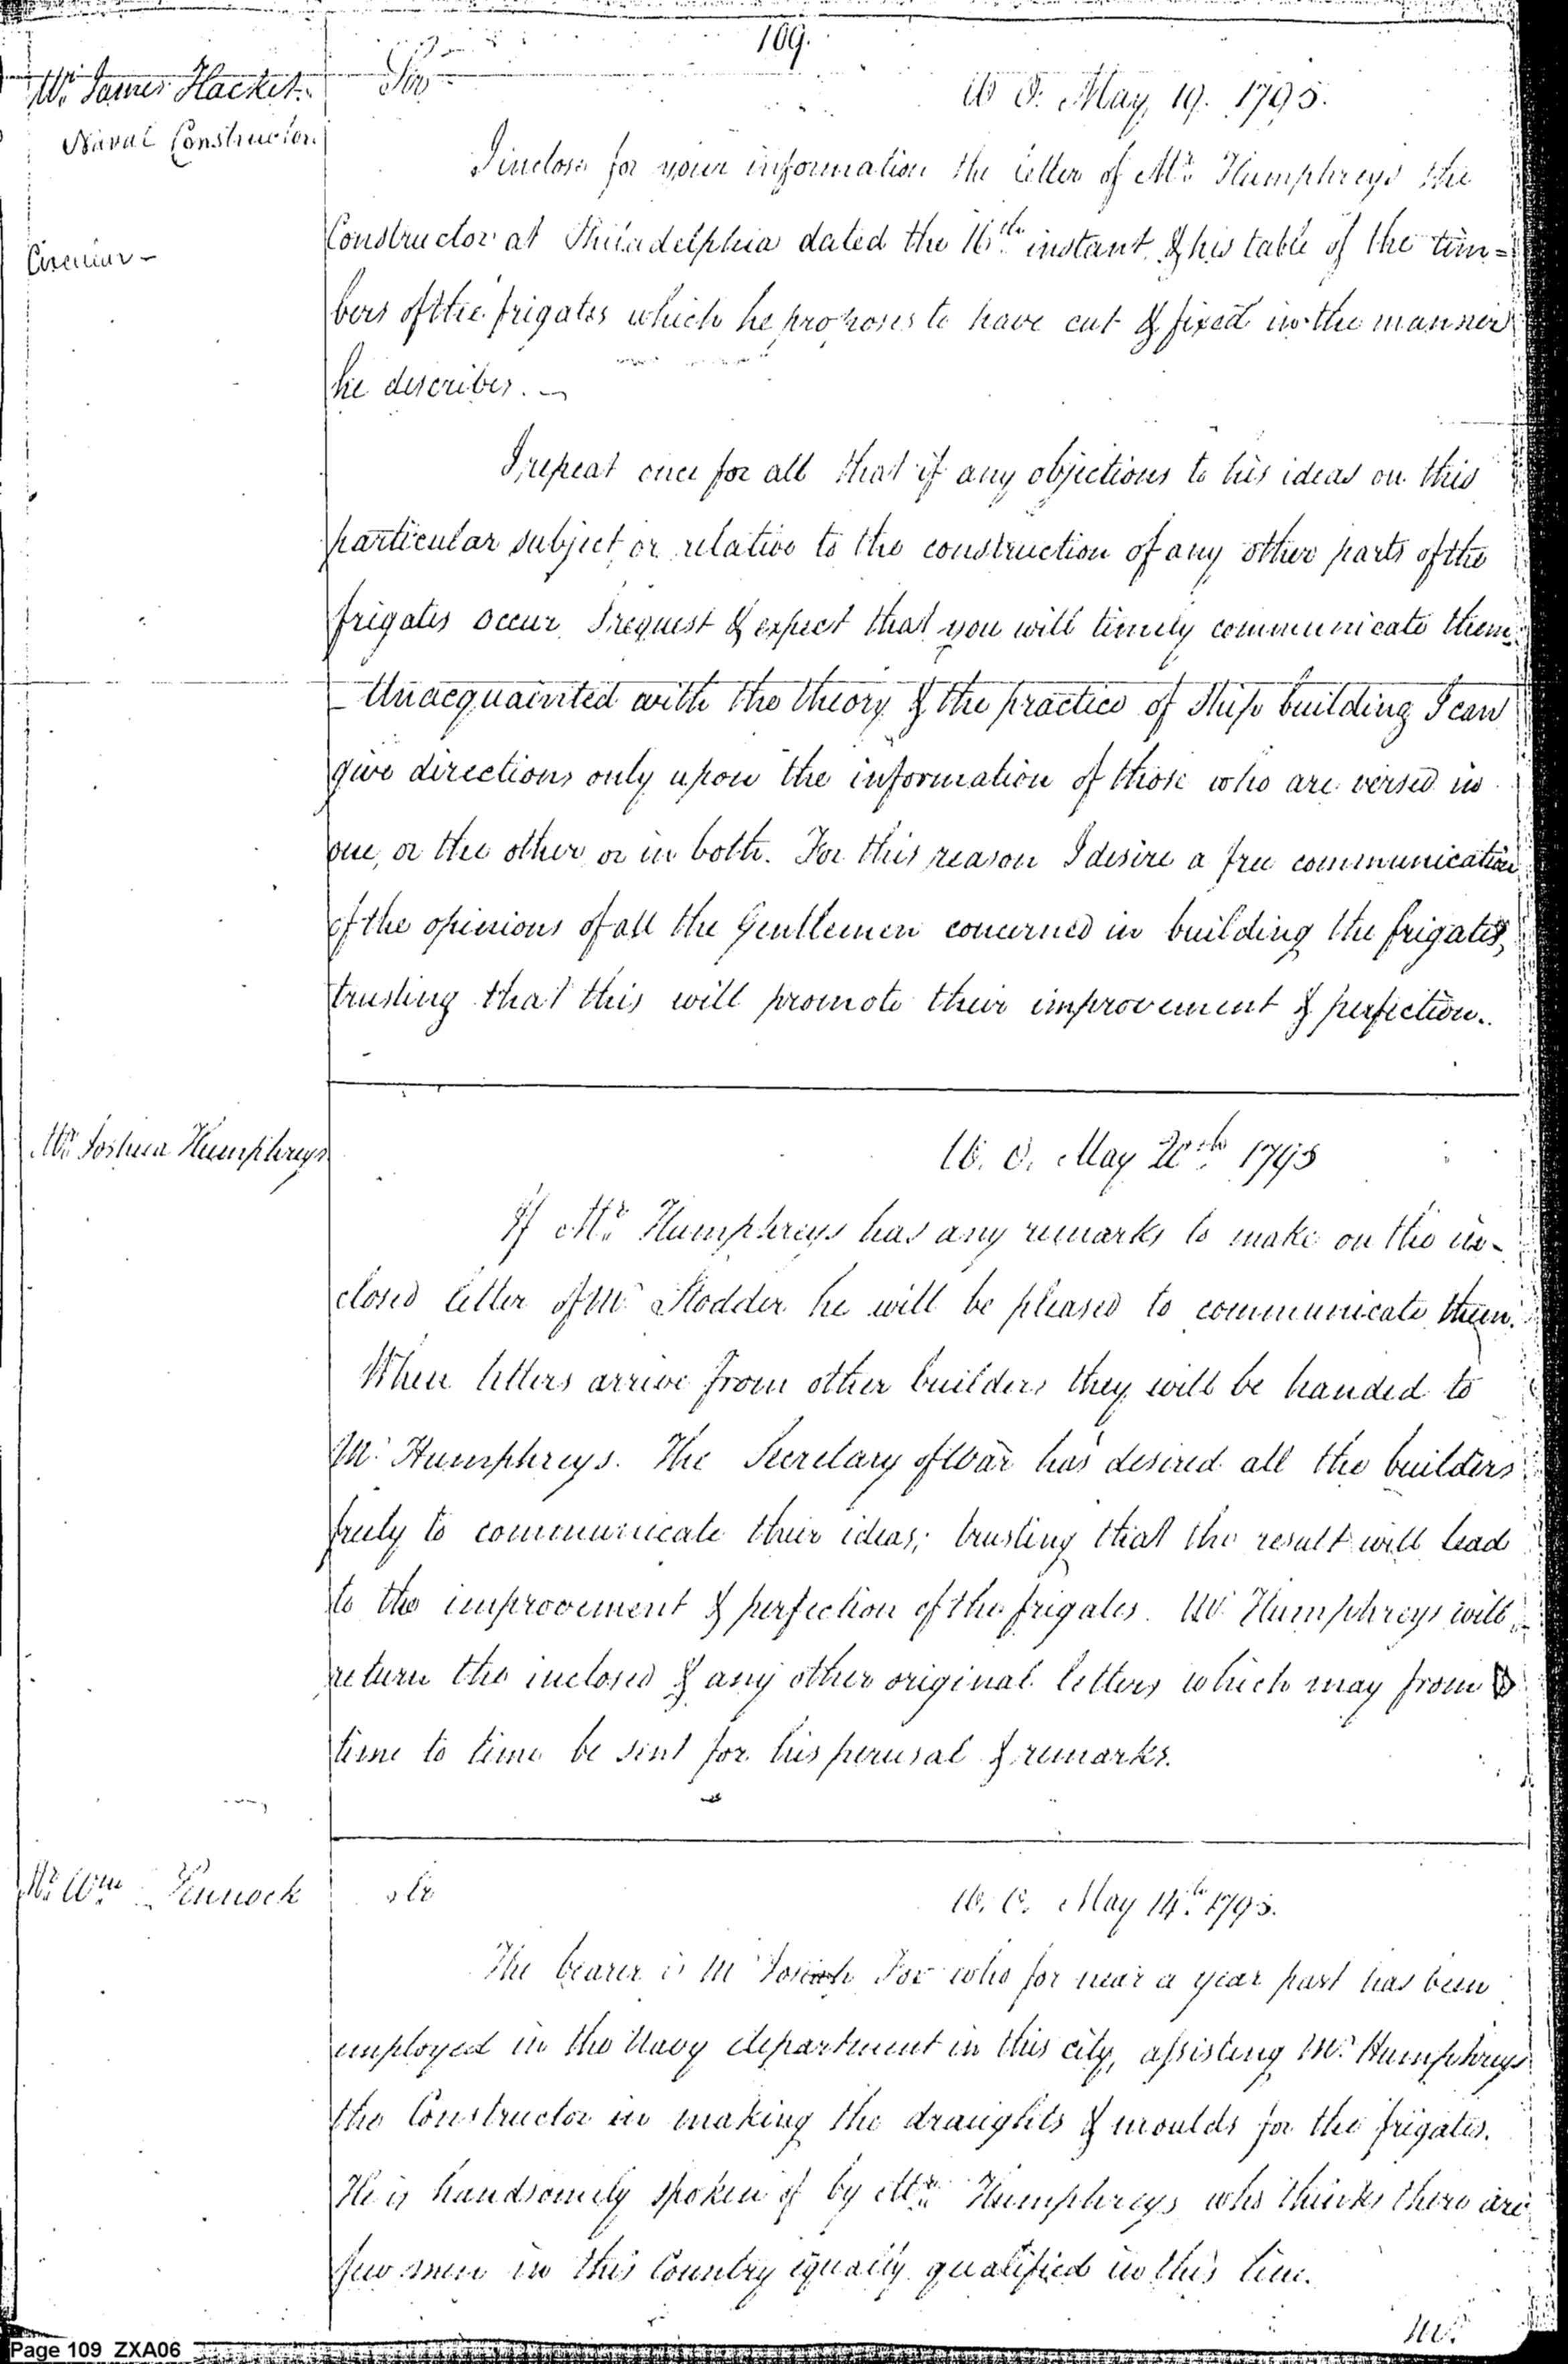 109.
Mr. James Hacket.
Naval Constructor.
Circular -
Sir
W O. May, 19. 1795.
I inclose for your information the letter of Mr. Humphreys the
Constructor at Philadelphia dated the 16th instant & his table of the tim=
bers of the frigates which he proposes to have cut & fixed in the manner
he describes. -
I repeat once for all that if any objections to his ideas on this
particular subject, or relative to the construction of any other parts of the
frigates occur, I request & expect that you will timely communicate them.
- Unacquainted with the theory & the practice of Ship building I can
give directions only upon the information of those who are versed in
one, or the other, or in both. For this reason I desire a free communication
of the opinions of all the Gentlemen concerned in building the frigates,
trusting that this will promote their improvement & perfection.
Mr. Joshua Humphreys
W. O. May 20th 1795
If Mr. Humphreys has any remarks to make on the in-
closed letter of Mr. Stodder he will be pleased to communicate them.
When letters arrive from other builders they will be handed to
Mr. Humphreys. The Secretary of War has desired all the builders
freely to communicate their ideas; trusting that the result will lead
to the improvement & perfection of the frigates. Mr. Humphreys will
return the inclosed & any other original letters which may from
time to time be sent for his perusal & remarks.
Mr. Wm Pennock
Sir
W. O. May 14th. 1795.
The bearer is Mr Josiah Fox who for near a year past has been
employed in the Navy department in this city, assisting Mr. Humphreys
the Constructor in making the draughts & moulds for the frigates.
He is handsomely spoken of by Mr. Humphreys who thinks there are
few men in this Country equally qualified in this line.
Mr.
Page 109 ZXA06